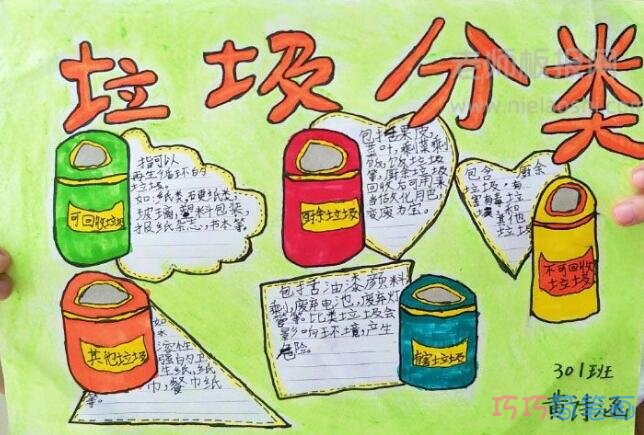 垃圾分类
指可以
再生循环的
垃圾。
如:纸类,硬纸类,
玻璃,塑料包装,
报纸杂志,书本等。
可回收垃圾
包括果皮,
菜叶,剩菜剩
饭,饭垃圾
等,厨余垃圾
回收后可用来
当作
变废为宝。
厨余垃圾
包含:厨余
垃圾,有
害有毒垃
圾和
其他
垃圾
不可回收
垃圾
其他垃圾
如
水
溶性
强的卫
生纸,纸
巾,餐巾纸
等。
包括舌油漆颜料
剩,废弃电池,废弃灯
管等。比类垃圾会
影响环境,产生
危险。
有害垃圾
301班
www.nielaoshi.com
巧巧简笔画